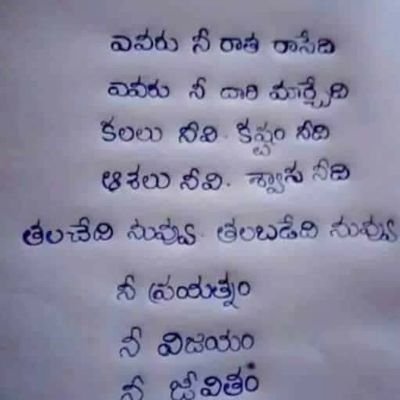 ఎవరు నీ రాత రాసేది
ఎవరు నీ దారి మార్చేది
కలలు నీవి. కష్టం నీది
ఆశలు నీవి. శ్వాస నీది
తలచేది నువ్వు. తలబడేది నువ్వు
నీ ప్రయత్నం
నీ విజయం
నీ జీవితం